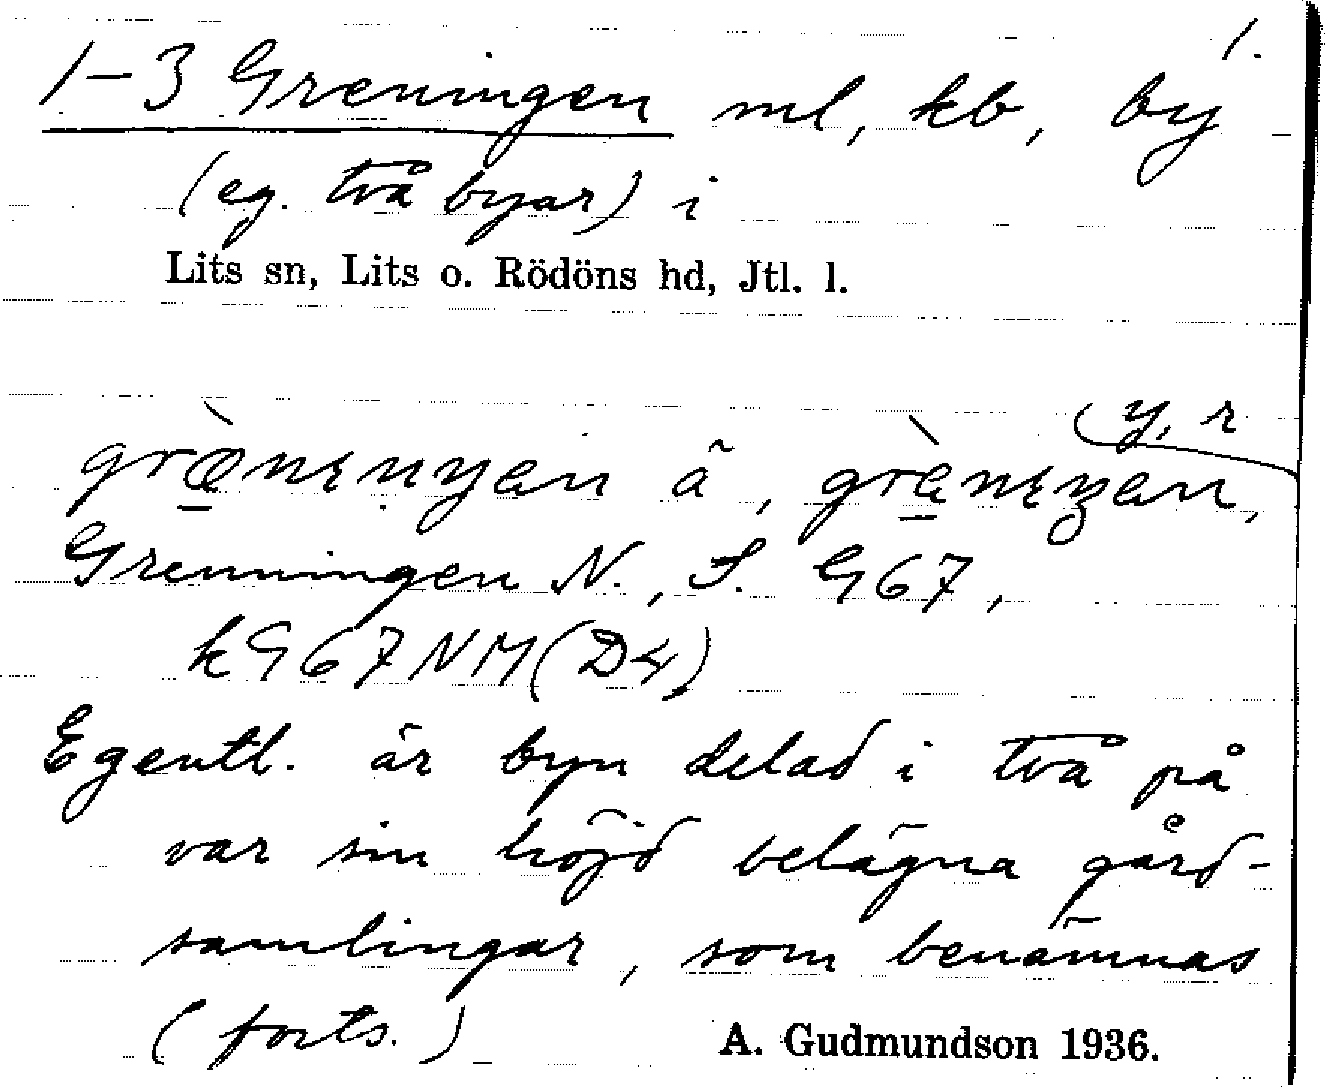 1.
1-3 Greningen ml, kb, by
(eg. två byar) i
Lits sn, Lits o. Rödöns hd, Jtl. l.
y, r
ã,
Grenningen N., S. G67,
kG67NM(D4)
Egentl. är byn delad i två på
var sin höjd belägna gård-
samlingar, som benämnas
(forts.)
A. Gudmundson 1936.